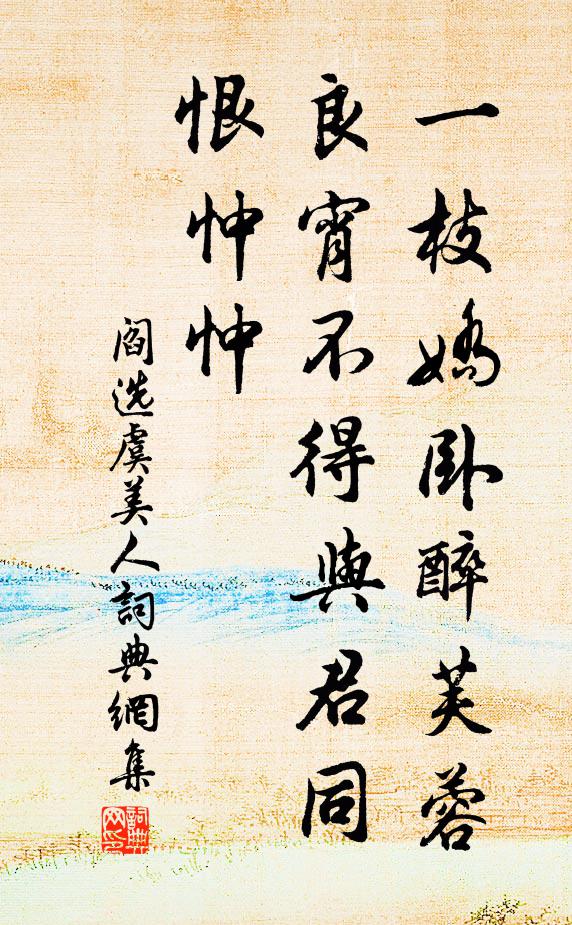 一枝嬌卧醉芙蓉
良宵不得與君同
恨忡忡
閻选虞美人詞典網集
詞典网印